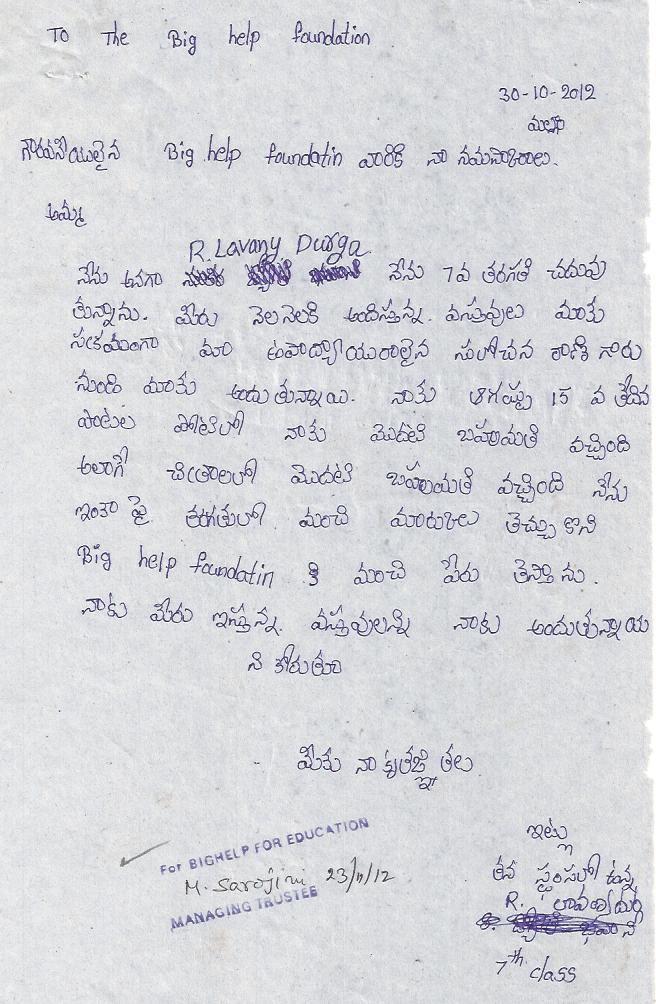 To The Big help foundation
30-10-2012
మల్లాం
గౌరవనీయులైన Big help foundatin వారికి నా నమస్కారాలు.
అమ్మ
R. Lavany Durga
నేను అనగా నేను 7వ తరగతి చదువు
తున్నాను. మీరు నెలనెలకి అందిస్తున్న వస్తువులు మాకు
సక్రమంగా మా ఉపాధ్యాయురాలైన సులోచన రాణి గారు
నుండి మాకు అందుతున్నాయి. నాకు ఆగష్టు 15 వ తేదిన
పాటల పోటిలో నాకు మొదటి బహుమతి వచ్చింది
అలాగే చిత్రాలలో మొదటి బహుమతి వచ్చింది నేను
ఇంకా పై తరగతులో మంచి మారుకులు తెచ్చుకొని
Big help foundatin కి మంచి పేరు తెస్తాను.
నాకు మీరు ఇస్తున్న వస్తువులన్ని నాకు అందుతున్నాయ
ని కోరుతూ
మీకు నా కృతజ్ఞతలు
ఇట్లు
For BIGHELP FOR EDUCATION
తమ స్థంసలో ఉన్న
M. Sarojini 23/11/12
R. లావణ్యదుర్గ
MANAGING TRUSTEE
7th class